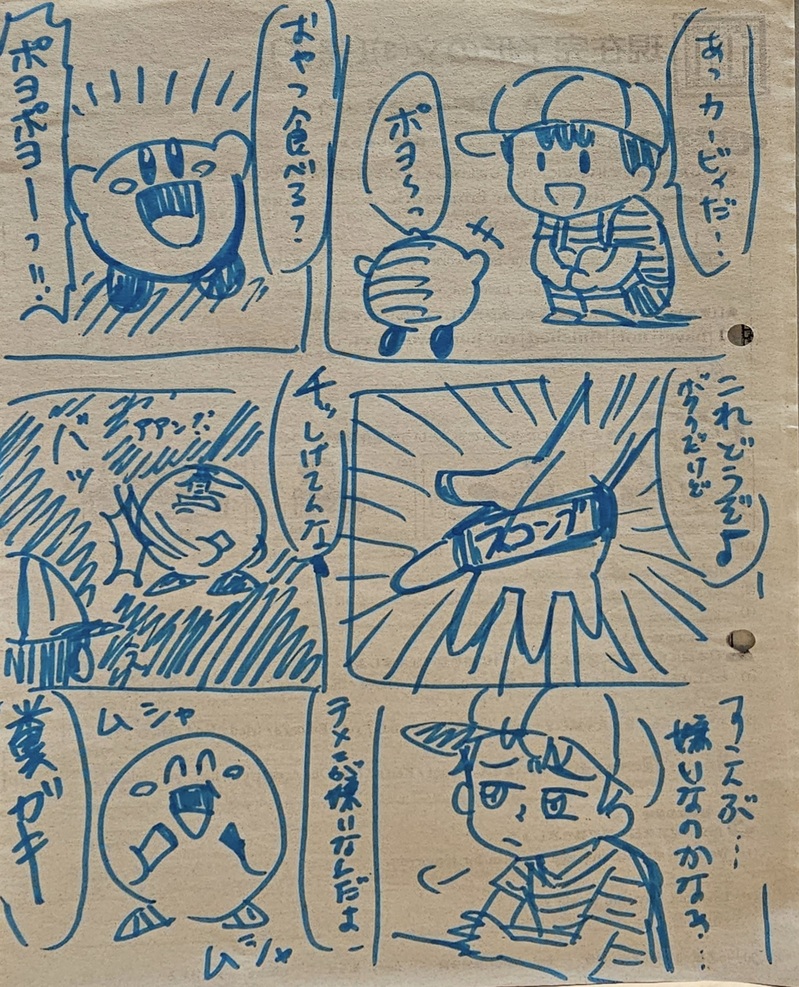 あっカービィだ!
ポヨ〜っ
おやつ食べろ?
ポヨポヨーっ!!
これどうぞよ
ボクのだけど
スコンブ
チッしけてんな
アアンだ
ベッ
すこんぶ…
嫌いなのかなぁ…
テメェが嫌いなんだよ
ムシャ
ムシャ
糞ガキ